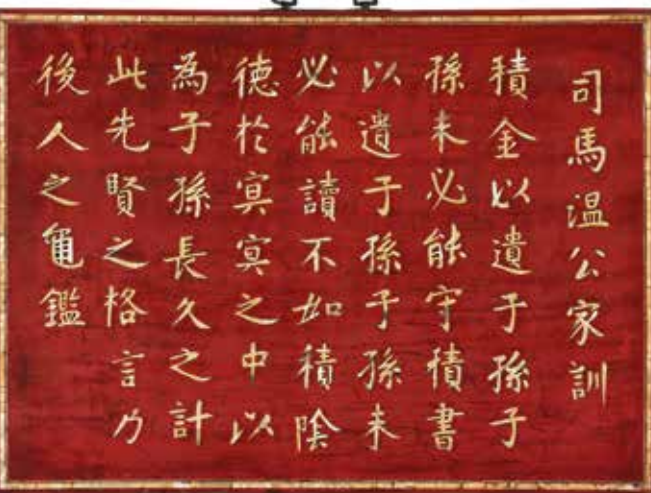 司馬温公家訓
積金以遺于孫子
孫未必能守積書
以遺于孫子孫未
必能讀不如積陰
德於冥冥之中以
為子孫長久之計
此先賢之格言乃
後人之龜鑑